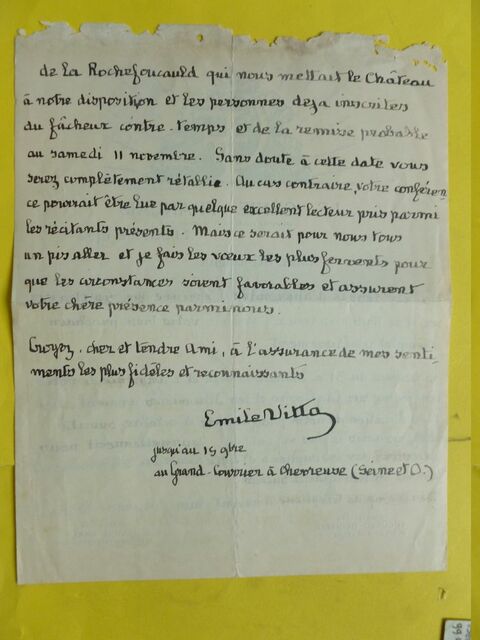 de la Rochefoucauld qui nous mettait le Château
à notre disposition et les personnes deja inscrites
du fâcheux contre-temps et de la remise probable
au samedi 11 novembre. Sans doute à cette date vous
serez complètement rétablie. Au cas contraire, votre conféren
ce pourrait être lue par quelque excellent lecteur pris parmi
les récitants présents. Mais ce serait pour nous tous
un pis aller et je fais les vœux les plus fervents pour
que les circonstances soient favorables et assurent
votre chère présence parmi nous.
Croyez, cher et tendre Ami, à l'assurance de mes senti-
ments les plus fidèles et reconnaissants
Emile Vitta
jusqu'au 15 9bre
au Grand-Courrier à Chevreuse (Seine et O.)